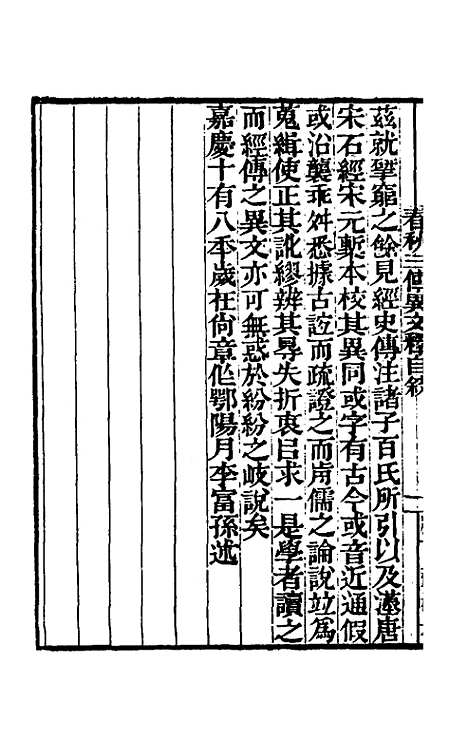 春秋三傳異文釋自敘
茲就揅窮之餘見經史傳注諸子百氏所引以及漢唐
宋石經宋元槧本校其異同或字有古今或音近通假
或沿襲乖舛悉據古誼而疏證之而前儒之論說竝爲
蒐緝使正其訛繆辨其㝵失折衷㠯求一是學者讀之
而經傳之異文亦可無惑於紛紛之岐說矣
嘉慶十有八秊歲在尙章作鄂陽月李富孫述